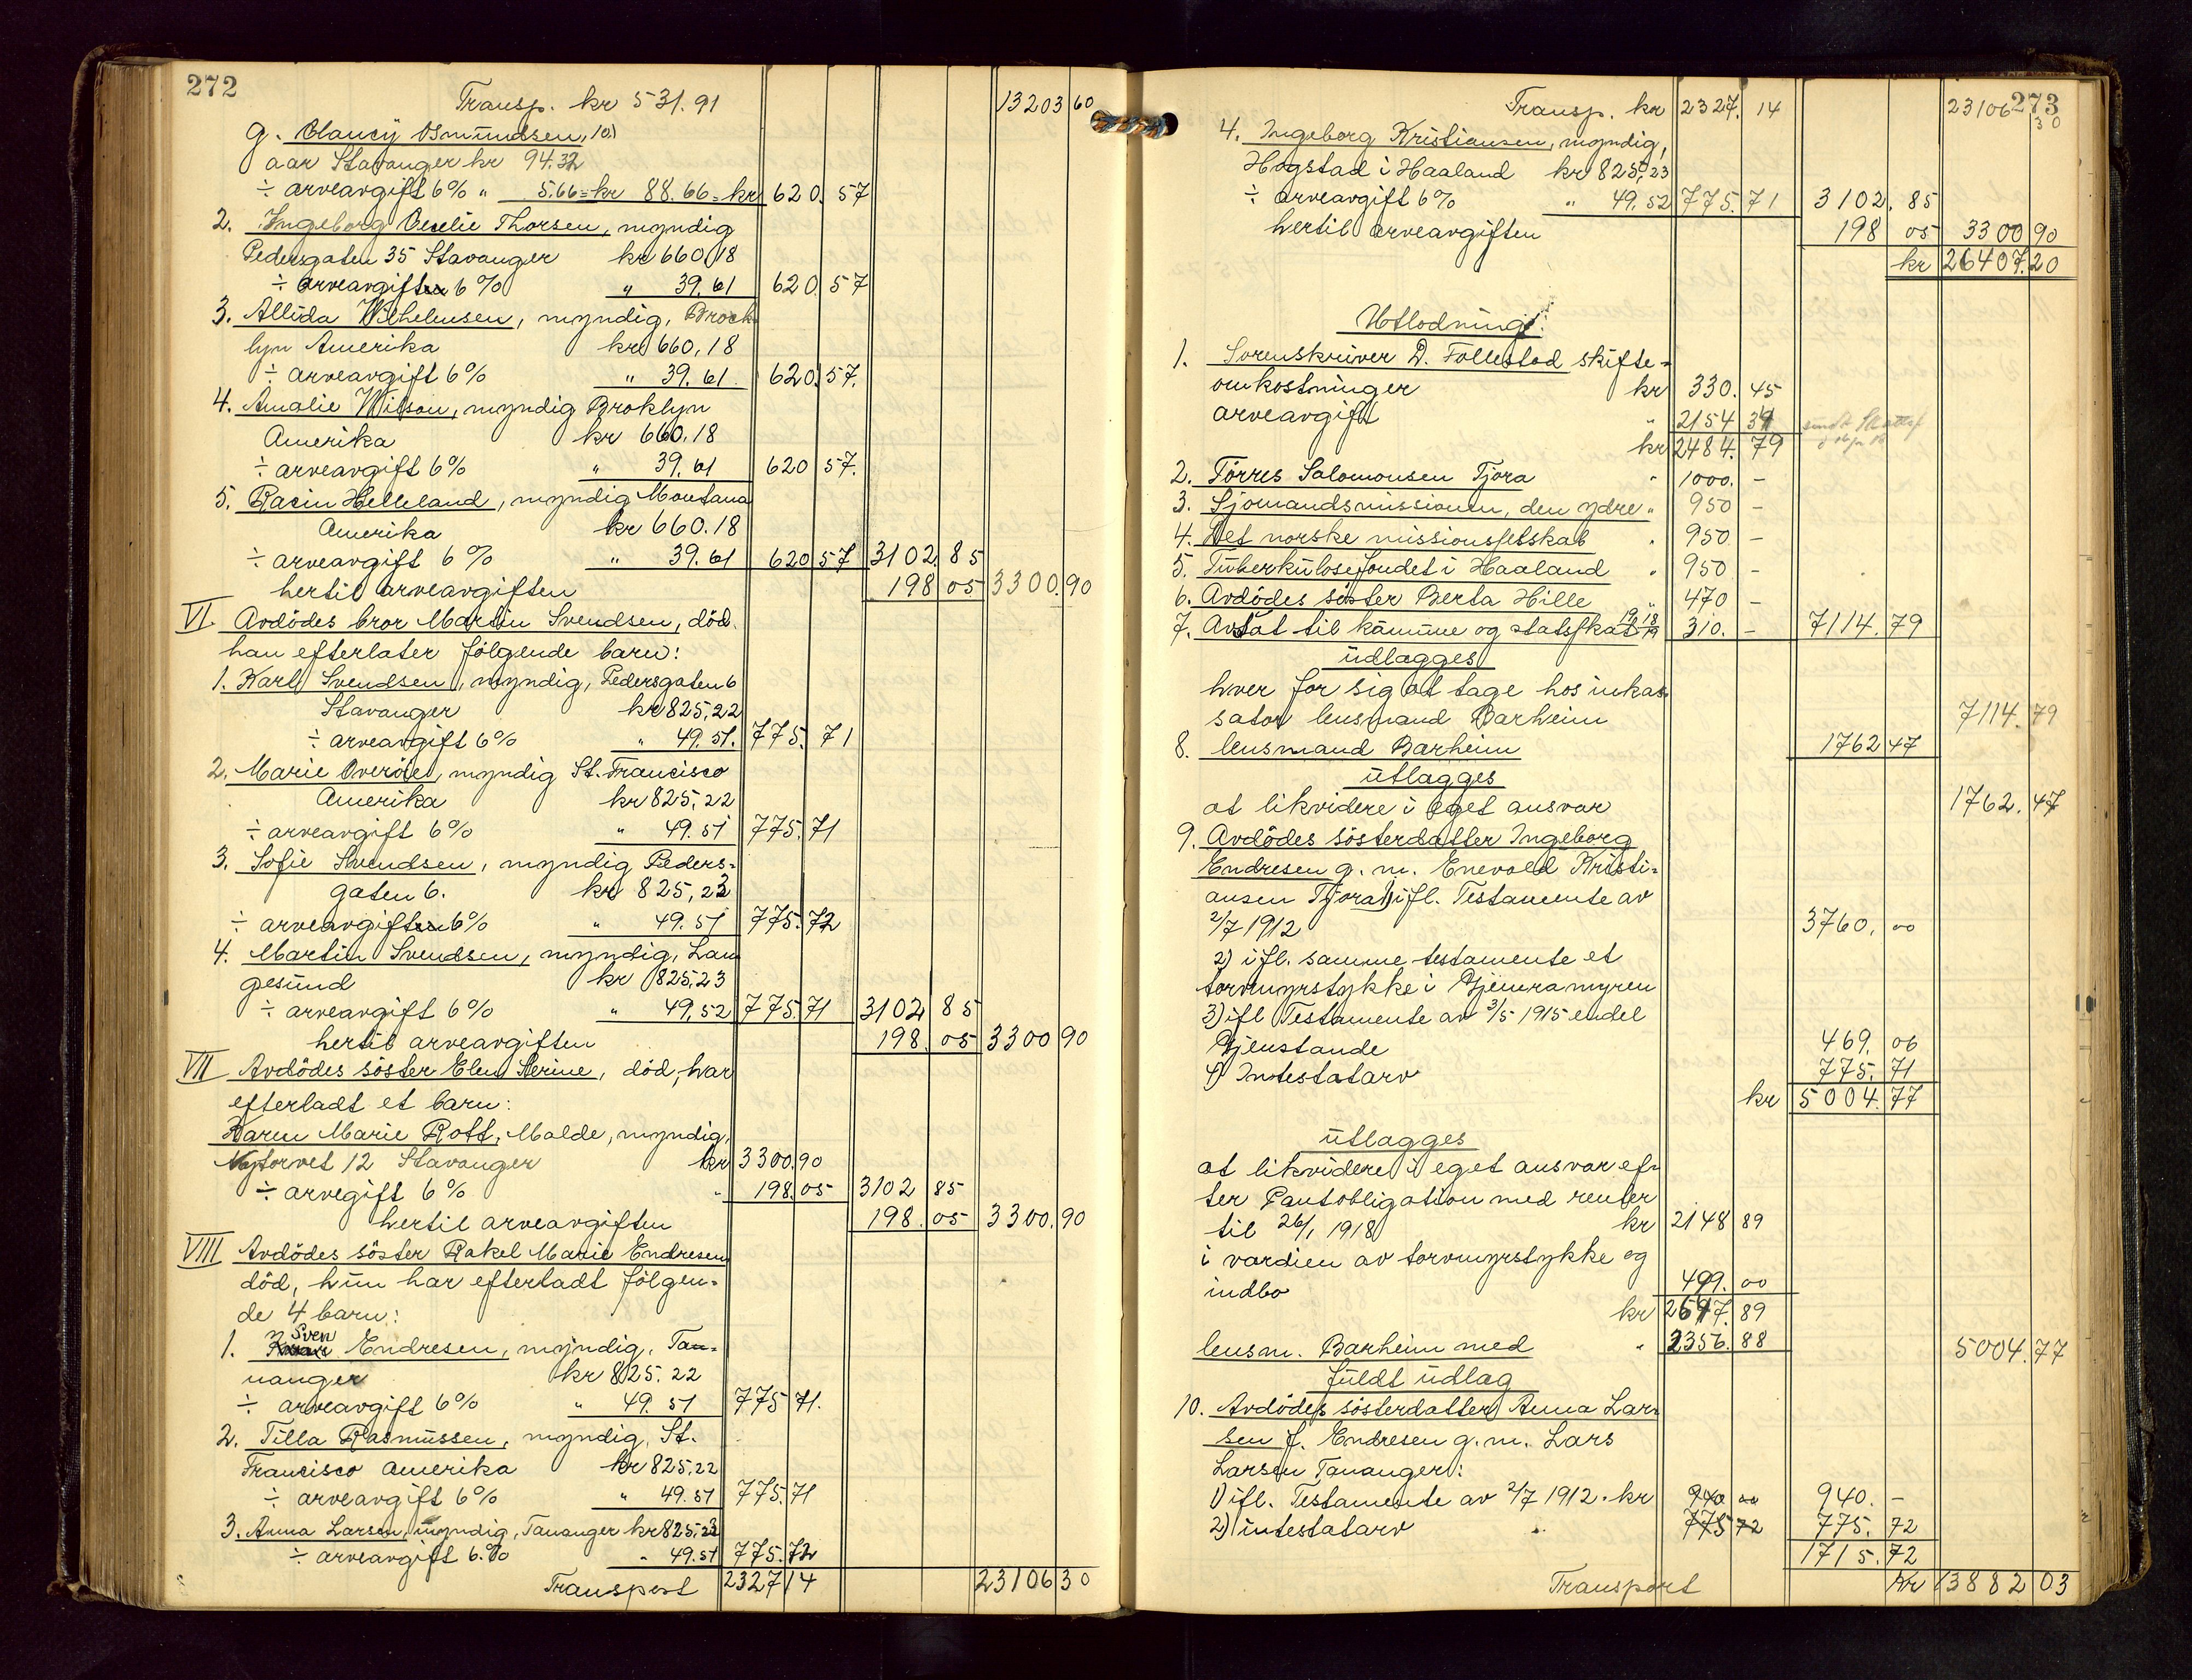 272
Transp. kr 531.91 13203 60
g. Clancy Osmundsen, 10)
aar Stavanger kr 94.32
÷ arveavgift 6% " 5.66 = kr 88.66 = kr 620. 57
2. Ingeborg Ocelie Thorsen, myndig
Pedersgaten 35 Stavanger kr 660,18
÷ arveavgiften 6% " 39.61 620. 57
3. Allida Wilhelmsen, myndig, Brook-
lyn Amerika kr 660,18
÷ arveavgift 6% " 39.61 620. 57.
4. Amalie Wilson, myndig Broklyn
Amerika kr 660.18
÷ arveavgift 6% " 39.61 620 57.
5. Racin Helleland, myndig Montana
Amerika kr 660.18
÷ arveavgift 6% " 39.61 620 57 3102. 85
hertil arveavgiften 198 05 3300. 90
VI. Avdödes bror Martin Svendsen, död.
han efterlater følgende barn:
1. Karl Svendsen, myndig, Pedersgaten 6
Stavanger kr 825,22
÷ arveavgift 6% " 49.51. 775. 71
2. Marie Overöie, myndig St. Francisco
Amerika kr 825,22
÷ arveavgift 6% " 49.51 775. 71
3. Sofie Svendsen, myndig Peders-
gaten 6. kr 825,23
÷ arveavgiften 6% " 49.51 775. 72
4. Martin Svendsen, myndig, Lan
gesund kr 825,23
÷ arveavgift 6% " 49,52 775. 71 3102 85
hertil arveavgiften 198. 05 3300 90
VII Avdödes söster Elen Serine, död, har
efterladt et barn:
Karen Marie Rott, Malde, myndig,
Nytorvet 12 Stavanger kr 3300.90
÷ arvegift 6% " 198.05 3102 85
hertil arveavgiften 198. 05 3300. 90
VIII Avdödes söster Rakel Marie Endresen
död, hun har efterladt fölgen-
de 4 barn:
1. Sven Endresen, myndig, Tan-
nanger kr 825.22
÷ arveavgift 6% " 49.51 775 71.
2. Tilla Rasmussen, myndig, St.
Francisco Amerika kr 825,22
÷ arveavgift 6% " 49.51 775. 71
3. Anna Larsen, myndig, Tananger kr 825,23
÷ arveavgift 6.% " 49.51 775. 72
Transport 2327 14 23106 30
273
Transp. kr 2327. 14 23106 30
4. Ingeborg Kristiansen, myndig,
Hogstad i Haaland kr 825,23
÷ arveavgift 6% " 49.52 775. 71 3102. 85
hertil arveavgiften 198 05 3300 90
kr 26407. 20
Utlodning:
1. Sorenskriver D. Follestad skifte-
omkostninger kr 330. 45
arveavgift " 2154 34
kr 2484. 79
2. Törres Salomonsen Tjora " 1000. -
3. Sjömandsmissionen, den ydre " 950 -
4. Det norske missionsselskab " 950 -
5. Tuberkulosefondet i Haaland " 950 -
6. Avdödes söster Berta Hille " 470 -
7. Avsat til kommue og statsskat 1918/19 310. - 7114. 79
udlagges
hver for sig at tage hos inkas-
sator lensmand Barheim 7114. 79
8. lensmand Barheim 1762 47
utlagges
at likvidere i eget ansvar 1762. 47
9. Avdödes sösterdatter Ingeborg
Endresen g. m. Enevold Kristi-
ansen Tjora 1) ifl. Testamente av
2/7 1912 3760. 00
2) ifl. samme testamente et
torvmyrstykke i Gjemramyren
3) ifl Testamente av 3/5 1915 endel
Gjenstande 469. 06
4) Intestatarv 775. 71
kr 5004. 77
utlagges
at likvidere i eget ansvar ef-
ter Pantobligation med renter
til 26/1 1918 kr 2148 89
i værdien av torvmyrstykke og
indbo 499. 00
kr 2647. 89
lensm. Barheim med " 2356. 88 5004. 77
fuldt udlag
10. Avdödes sösterdatter Anna Lar-
sen f. Endresen g. m. Lars
Larsen Tananger:
1) ifl. Testamente av 2/7 1912. kr 940 00 940. -
2) intestatarv " 775 72 775. 72
1715. 72
Transport kr 13882 03